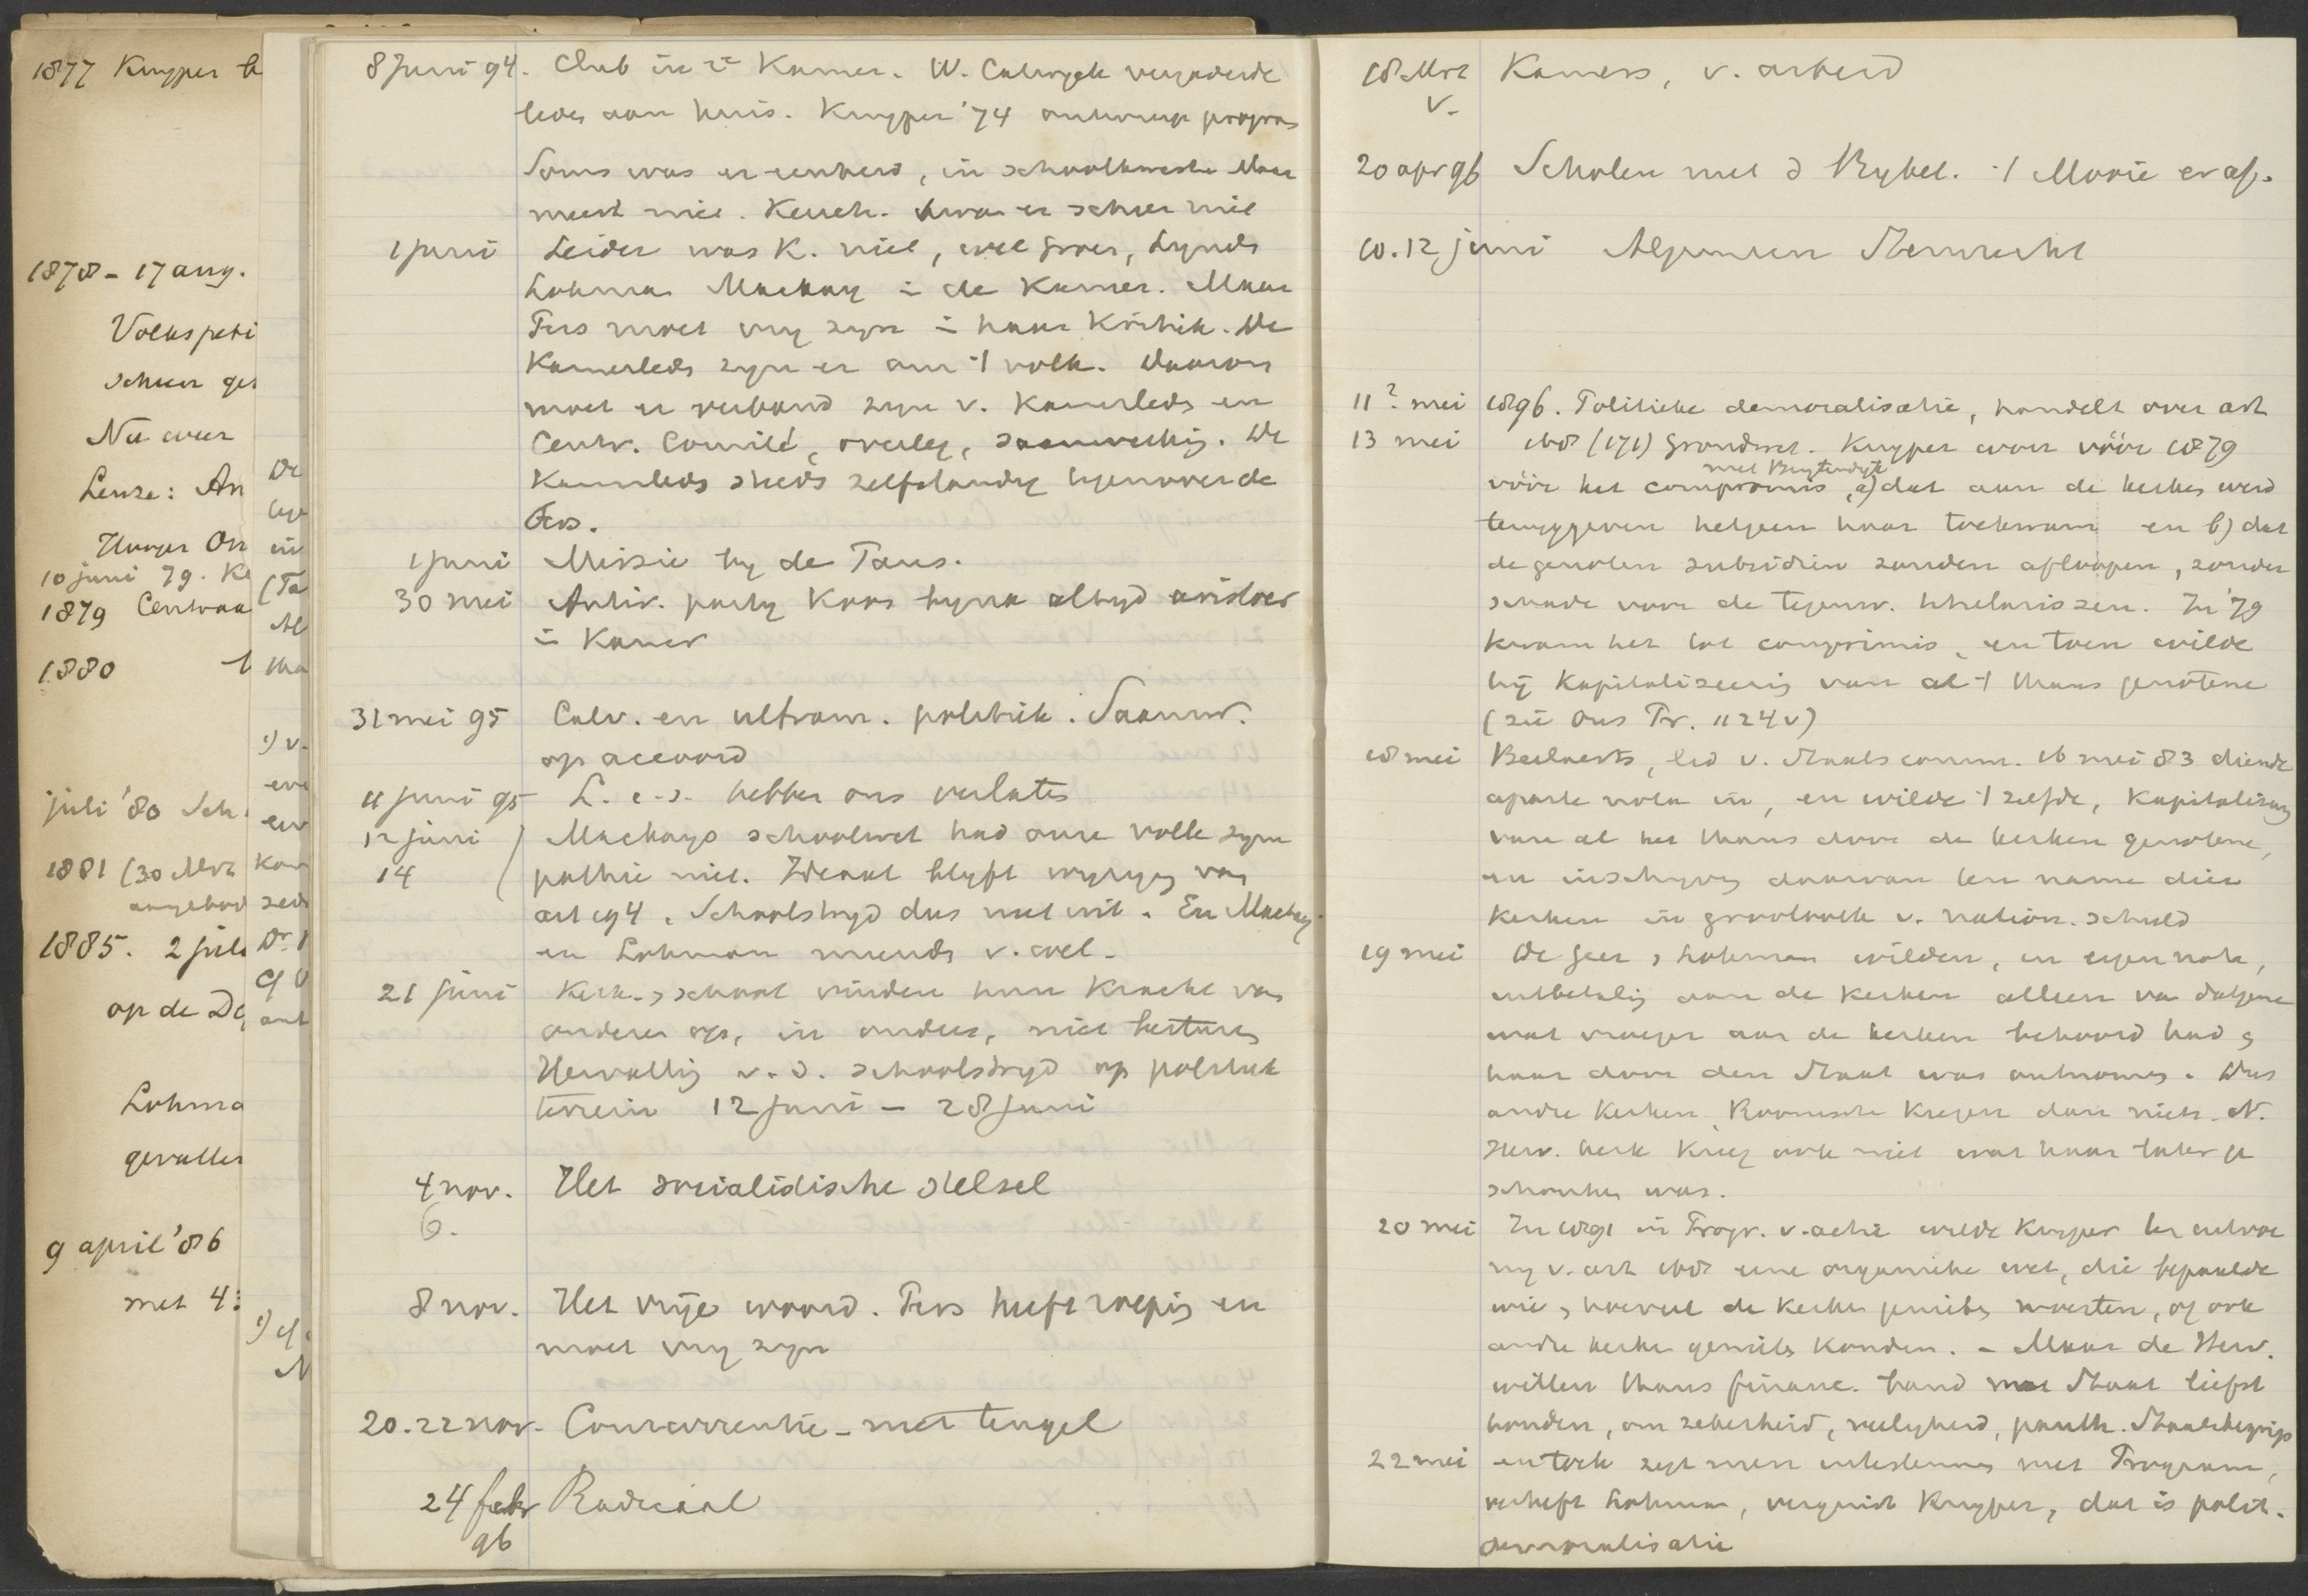 1877 Kuyper b
1878 - 17 aug.
Volkspeti
schuur ge
Nu weer
Leuze: An
Hooger On
10 juni 79. Ke
1879 Centraa
1880
juli '80 Sch
1881 (30 Mrt
aangebod
1885. 2 juli
op de D
Lohma
gevallen
9 april '86
met 43
De
in
(Ta
Al
1) v.
en
Kan
zed
Dr.
cf
ant
1) cf
8 Juni 94. Club in 2e Kamer. W. Cabryck vergaderde
leden aan huis. Kuyper '74 ontwierp program
Soms was er eenheid, in schoolkwestie Maar
meest niet. was er schier niet
1 juni Leider was K. niet, wel Groen, Lynden
Lohman Mackay in de Kamer. Maar
Pers moet vrij zijn in haar Kritiek. De
Kamerleden zijn er om 't volk. Daarom
moet er verband zijn v. Kamerleden en
Centr. Comité, overleg, saamwerking. De
Kamerleden steeds zelfstandig tegenover de
Pers.
1 juni Missie bij de Paus.
30 mei Antir. party Koos bijna altijd aristocr
in Kamer
31 mei 95 Calv. en ultram. politiek. Saamw.
op accoord
11 juni 95 L. c.s. hebben ons verlaten
12 juni Mackays schoolwet had onze volle sym
14 pathie niet. Ideaal blijft wijziging van
art 194. Schoolstrijd dus niet uit. En Mackay
en Lohman meenden v. wel.
21 juni Kerk en school vinden hun Kracht van
anderen op, in anderen, niet besturen
Hervatting v.d. schoolstrijd op politiek
terrein 12 juni - 28 juni
4 nov. Het socialistische stelsel
6.
8 nov. Het vrije woord. Pers heeft roeping en
moet vrij zijn
20.22 nov. Concurrentie - met teugel
24 febr Radicaal
96
18 Mrt Kamers, v. arbeid
v.
20 apr 96 Scholen met d Bybel. 't Mooie er af.
10.12 juni Algemeen Stemrecht
11? mei 1896. Politieke demoralisatie, handelt over art
13 mei 168 (171) Grondwet. Kuyper was vóór 1879
met Buytendyk
vóór het compromis, a) dat aan de kerken werd
teruggegeven hetgeen haar toekwam en b) dat
de genoten subsidien zouden afloopen, zonder
schade voor de tegenw. titularissen. In '79
kwam het tot compromis, en toen wilde
hij Kapitaliseering van al 't thans genotene
(zie Ons Pr. 1124v)
18 mei Beelaerts, lid v. Staatscomm. 16 mei 83 diende
aparte nota in, en wilde 't zelfde, Kapitalisering
van al het thans door de kerken genotene,
en inschrijving daarvan ten name dier
Kerken in grootboek v. nation. schuld
19 mei De Geer & Lohman wilden, in eigen nota,
uitbetaling aan de Kerken alleen van datgene
wat vroeger aan de kerken behoord had &
haar door den Staat was ontnomen. Dus
andre Kerken, Roomsche Kregen dan niets. N.
Herv. kerk Kreeg ook niet wat haar later ge
schonken was.
20 mei In 1891 in Progr. v. actie wilde Kuyper ter uitvoe
ring v. art 168 eene organieke wet, die bepaalde
wie & hoeveel de Kerken genieten moesten, of ook
andre kerken genieten konden. - Maar de Herv.
willen thans financ. band met Staat liefst
houden, om zekerheid, veiligheid, panth. Staatsbegrip
22 mei en toch zegt men instemmen met Program,
verheft Lohman, verguist Kuyper, dat is polit.
demoralisatie